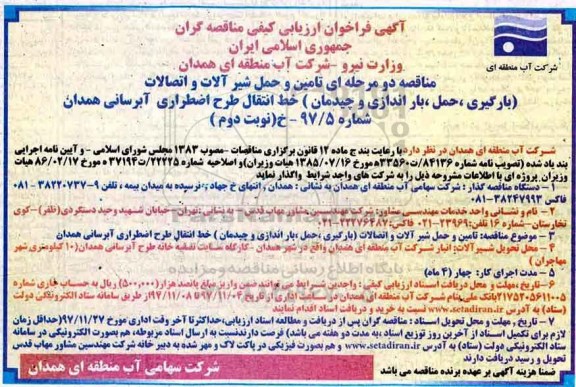 آگهی فراخوان ارزیابی کیفی مناقصه گران
جمهوری اسلامی ایران
وزارت نیرو - شرکت آب منطقه ای همدان
شرکت آب منطقه ای
مناقصه دو مرحله ای تامین و حمل شیر آلات و اتصالات
(بارگیری ،حمل ،بار اندازی و چیدمان ) خط انتقال طرح اضطراری آبرسانی همدان
شماره ۹۷/۵ - خ(نوبت دوم )
شرکت آب منطقه ای همدان در نظر دارد با رعایت بند ج ماده ۱۲ قانون برگزاری مناقصات - مصوب ۱۳۸۳ مجلس شورای اسلامی - و آیین نامه اجرایی
بند یاد شده (تصویب نامه شماره ۸۴۱۳۶/ت۳۳۵۶۰ه مورخ ۱۳۸۵/۰۷/۱۶ هیات وزیران)و اصلاحیه شماره ۲۲۲۲۵/ت۳۷۱۹۴ ه مورخ ۸۶/۰۲/۱۷ هیات
وزیران پروژه ای با اطلاعات مشروحه ذیل را به شرکت های واجد شرایط واگذار نماید
۱ - دستگاه مناقصه گذار : شرکت سهامی آب منطقه ای همدان به نشانی : همدان ، انتهای خ جهاد ، نرسیده به میدان بیمه ، تلفن ۹-۳۸۲۲۰۷۳۷-۰۸۱
فاکس ۳۸۲۴۷۹۹۳-۰۸۱
۲ - نام و نشانی واحد خدمات مهندسی مشاور: شرکت مهندسین مشاور مهاب قدس - به نشانی :تهران -خیابان شهید وحید دستگردی(ظفر) -کوی
تخارستان -شماره ۱۶ تلفن:۲۳۹۶۹-۰۲۱ فاکس:
۳ - موضوع مناقصه: تامین و حمل شیر آلات و اتصالات (بارگیری ،حمل ،بار اندازی و چیدمان ) خط انتقال طرح اضطراری آبرسانی همدان
۴ - محل تحویل شیرآلات: انبار شرکت آب منطقه ای همدان واقع در شهر همدان -کارگاه سایت تصفیه خانه طرح آبرسانی همدان(۱۰ کیلومتری شهر
مهاجران )
۵ - مدت اجرای کار: چهار (۴ ماه)
۶ - تاریخ ،مهلت و محل دریافت اسناد ارزیابی کیفی : واجدین شرایط می توانند ضمن واریز مبلغ پانصد هزار(۵۰۰،۰۰۰) ریال به حساب جاری شماره
۲۱۷۵۲۰۵۶۱۱۰۰۵ بانک ملی بنام شرکت آب منطقه ای همدان در ساعت اداری از تاریخ ۹۷/۱۱/۰۴ لغایت ۹۷/۱۱/۰۸ از طریق سامانه ستاد الکترونیکی دولت
(ستاد) به آدرس www.setadiran.ir نسبت به خرید و دریافت اسناد اقدام نمایند
۷ - تاریخ ، مهلت و محل تحویل اسناد : مناقصه گران پس از دریافت و مطالعه اسناد ارزیابی،حداکثر تا آخر وقت اداری مورخ ۹۷/۱۱/۲۷(حداقل زمان
لازم برای تکمیل اسناد از آخرین روز توزیع اسناد ،به مدت دو هفته می باشد) فرصت دارند نسبت به ارسال اسناد مربوطه، هم بصورت الکترونیکی در سامانه
ستاد الکترونیکی دولت (ستاد) به آدرس www.setadiran.ir و هم بصورت فیزیکی در پاکت لاک و مهر شده به دبیر خانه شرکت مهندسین مشاور مهاب قدس
تحویل و رسید دریافت دارند
ضمنا هزینه آگهی بر عهده برنده مناقصه می باشد
شرکت سهامی آب منطقه ای همدان